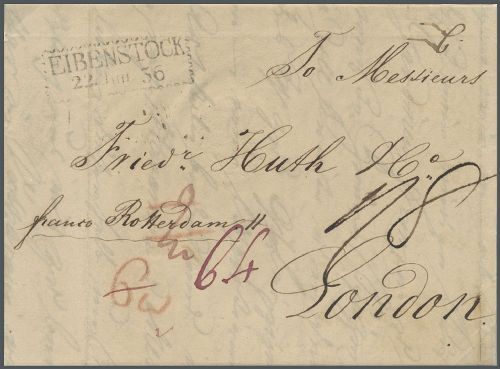 EIBENSTOCK
22. Jun 36
To Messieurs
Friedr. Huth & Co
franco Rotterdam
64
1/8
London